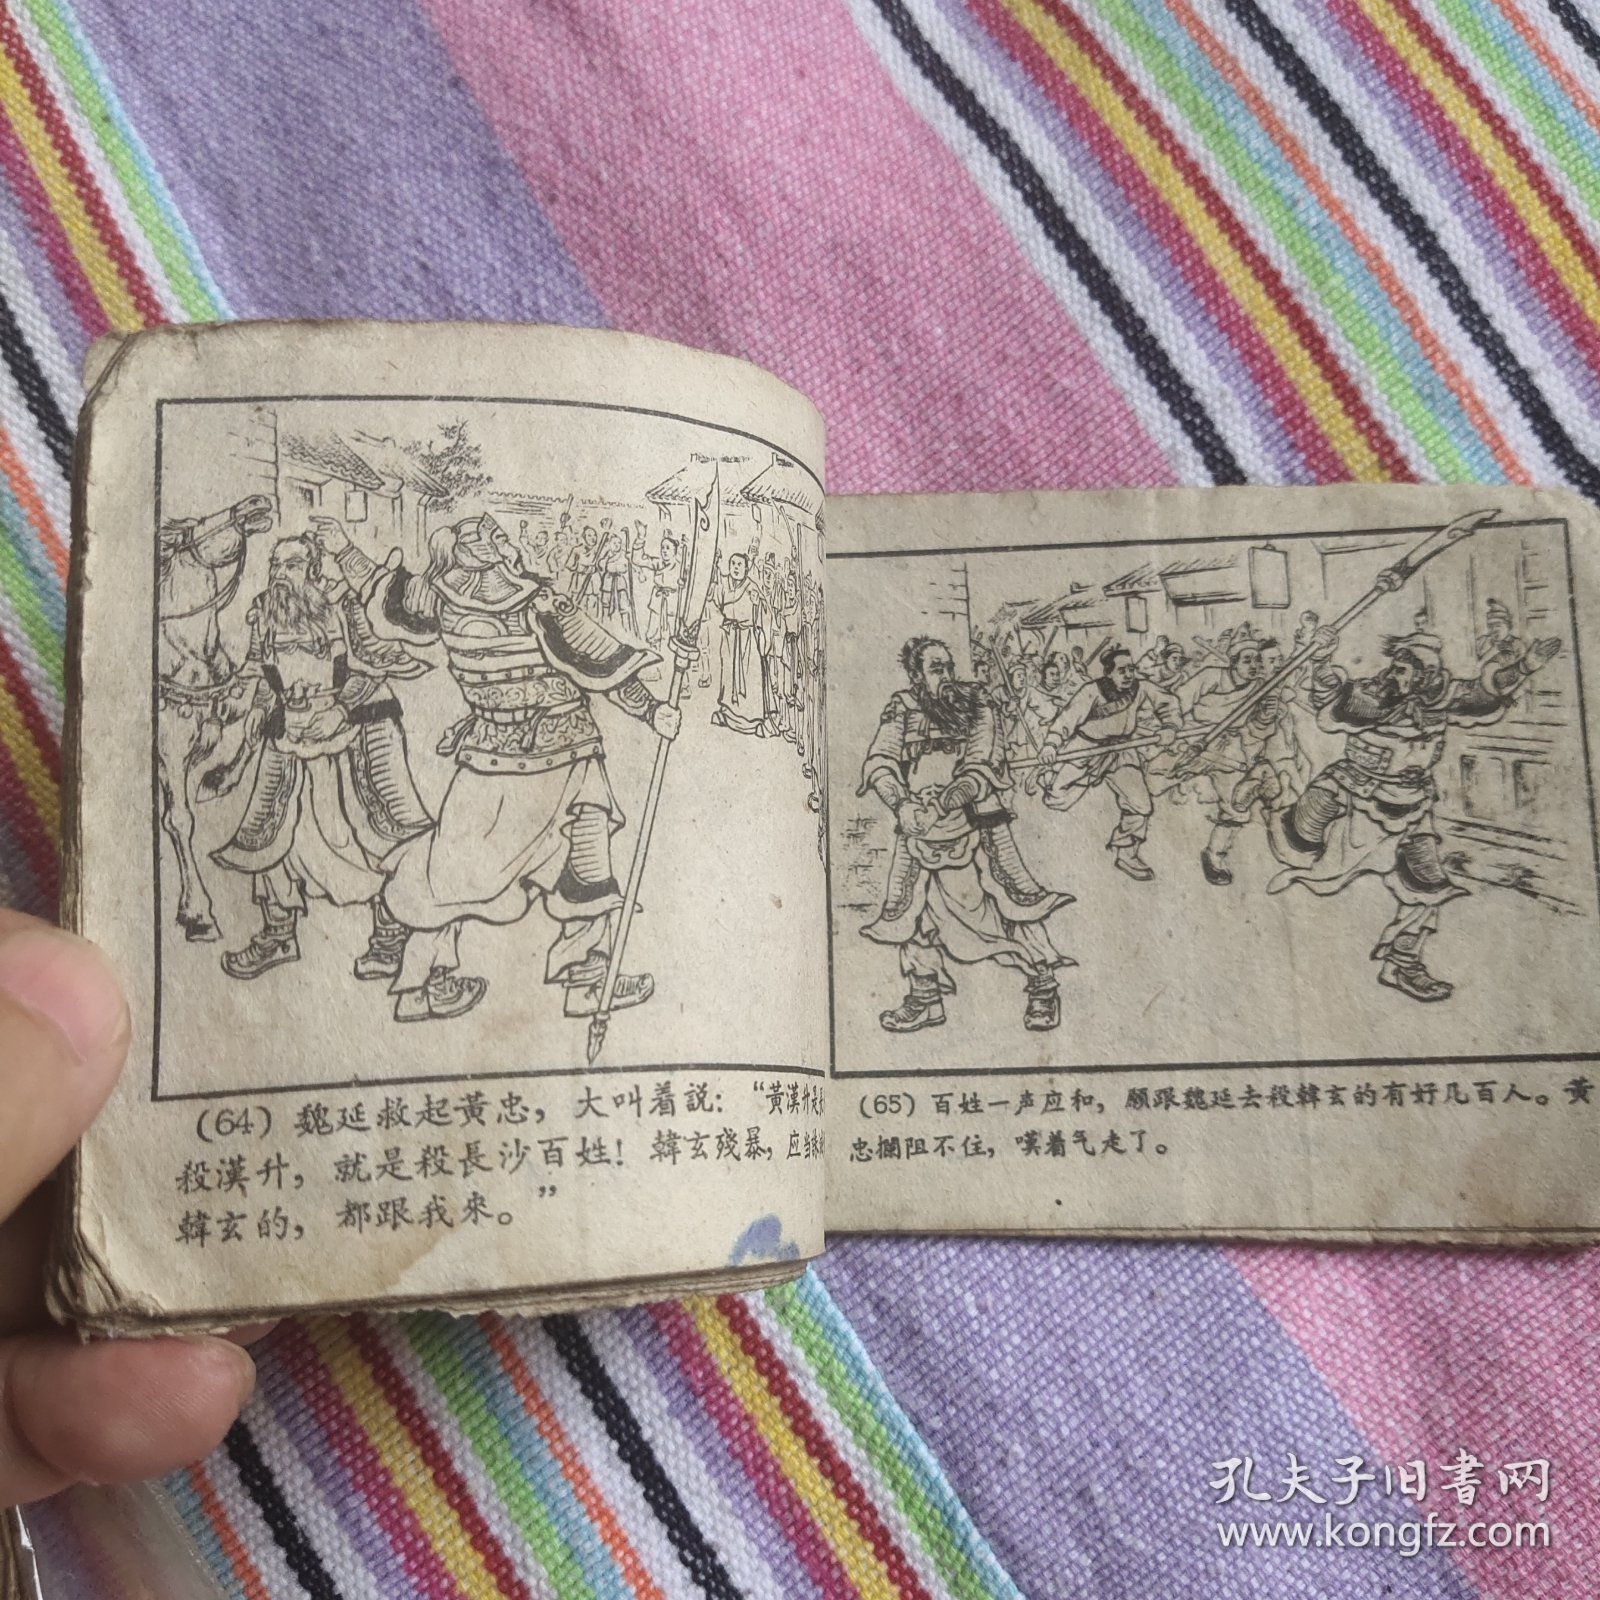 (64) 魏延救起黃忠，大叫着説：“黃漢升是長
殺漢升，就是殺長沙百姓！韓玄殘暴，应当
韓玄的，都跟我來。”
(65) 百姓一声应和，願跟魏延去殺韓玄的有好几百人。黃
忠攔阻不住，嘆着气走了。
孔夫子旧書网
www.kongfz.com